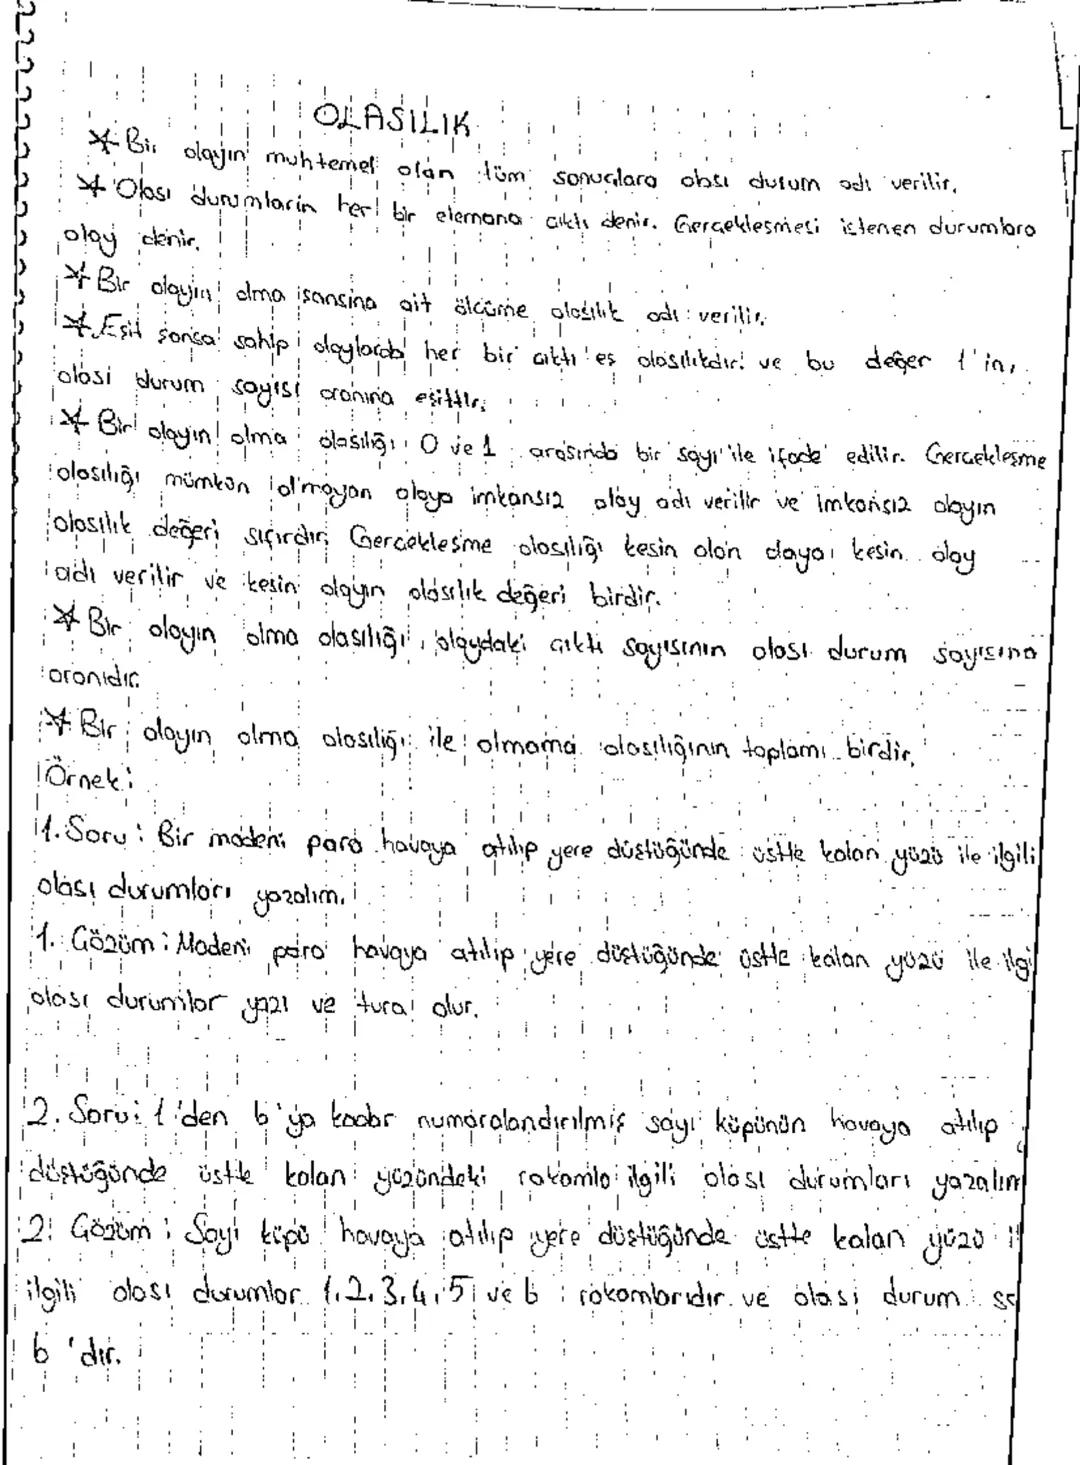 OLASILIK
* Bir olayın muhtemel olan tüm sonuçlara olası durum adı verilir.
* Olası durumların her bir elemana çıktı denir. Gerçekleşmesi istenen durumlara
olay denir.
* Bir olayın olma şansına ait ölçüme olasılık adı verilir.
* Eşit şansa sahip olaylarda her bir çıktı eş olasılıkdır ve bu değer 1'in,
olası durum sayısı oranına eşittir.
* Bir olayın olma olasılığı 0 ve 1 arasında bir sayı ile ifade edilir. Gerçekleşme
olasılığı mümkün olmayan olaya imkansız olay adı verilir ve imkansız olayın
olasılık değeri sıfırdır. Gerçekleşme olasılığı kesin olan olaya kesin olay
adı verilir ve kesin olayın olasılık değeri birdir.
* Bir olayın olma olasılığı, olaydaki çıktı sayısının olası durum sayısına
oranıdır.
* Bir olayın olma olasılığı ile olmama olasılığının toplamı birdir.
Örnek:
1. Soru: Bir madeni para havaya atılıp yere düştüğünde üstte kalan yüzü ile ilgili
olası durumları yazalım.
1. Çözüm: Madeni para havaya atılıp yere düştüğünde üstte kalan yüzü ile ilgi
olası durumlar yazı ve tura olur.
2. Soru: 1'den 6'ya kadar numaralandırılmış sayı küpünün havaya atılıp
düştüğünde üstte kalan yüzündeki rakamla ilgili olası durumları yazalım
2. Çözüm: Sayı küpü havaya atılıp yere düştüğünde üstte kalan yüzü
ilgili olası durumlar 1,2,3,4,5 ve 6 rakamlarıdır ve olası durum
6'dır.